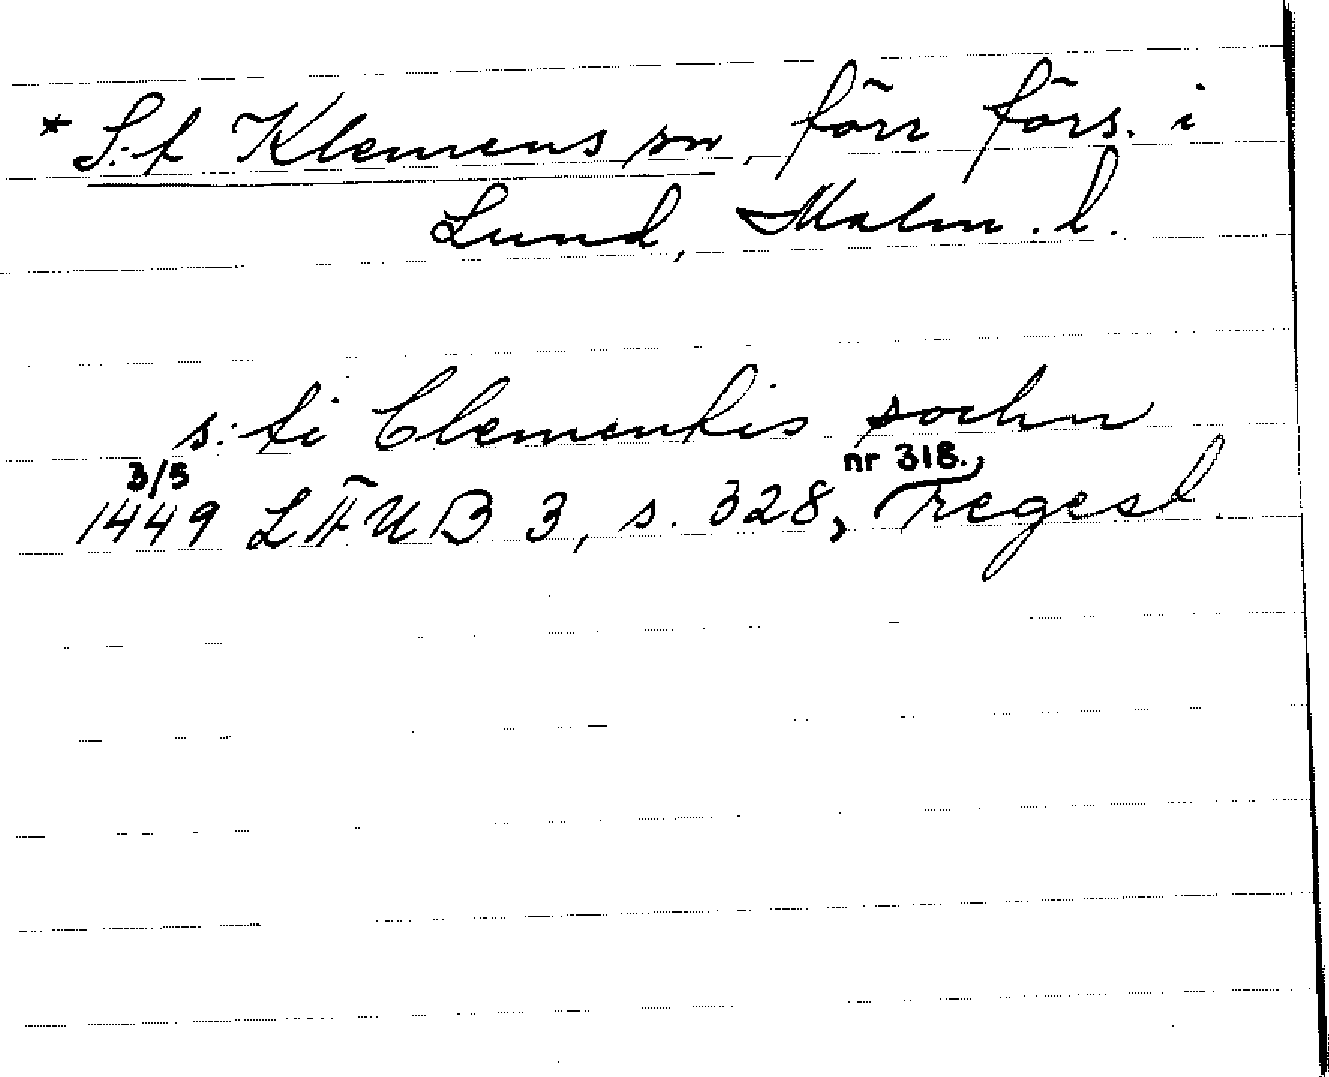 * S:t Klemens sn, förr förs. i
Lund, Malm. l.
s: ti Clementis sochn
3/5 nr 318.,
1449 LÄUB 3, s. 328, regest